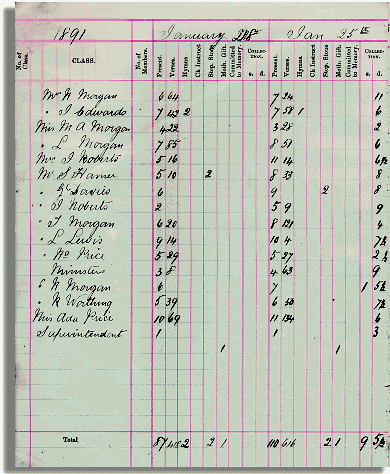 1891 January 18th Jan 25th
No. of Class. CLASS. No. of Members. Present. Verses. Hymns. Ch Instruct Stop. Stone Meth. Gift. Committed to Memory. COLLECTION. s. d. Present. Verses. Hymns Ch Instruct Stop. Stone Meth. Gift. Committed to Memory. COLLECTION. s. d.
Mr W Morgan 6 64 7 24 11
" I Edwards 7 42 2 7 58 1 6
Miss M A Morgan 4 22 3 28 2
" L Morgan 7 85 8 51 6
Mr I Roberts 5 16 11 14 6½
Mr S Hamer 5 10 2 8 33 8
" G Davies 6 9 2 8
" I Roberts 2 5 9 9
" T Morgan 6 20 8 121 4
" L Lewis 9 14 10 4 7½
" Wo Price 5 29 5 27 2½
Ministers 3 8 4 63 9
" N Morgan 6 7 1 5½
" R Worthing 5 39 6 40 7½
Miss Ada Price 10 69 11 134 6
Superintendent 1 1 3
1 1
Total 87 418 2 2 1 110 616 2 1 9 5½